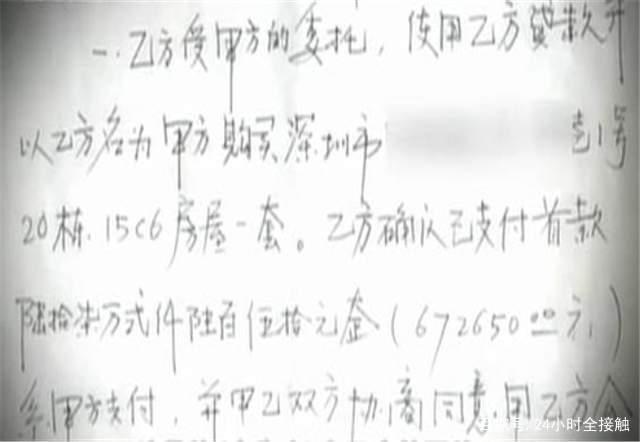 一.乙方受甲方的委托，使用乙方贷款并
以乙方名为甲方购买深圳市 壱1号
20栋.15C6房屋一套。乙方确认已支付首款
陆拾柒万弍仟陆百伍拾元叁（672650.00元）
系甲方支付，并甲乙双方协商同意用乙方
24小时全接触